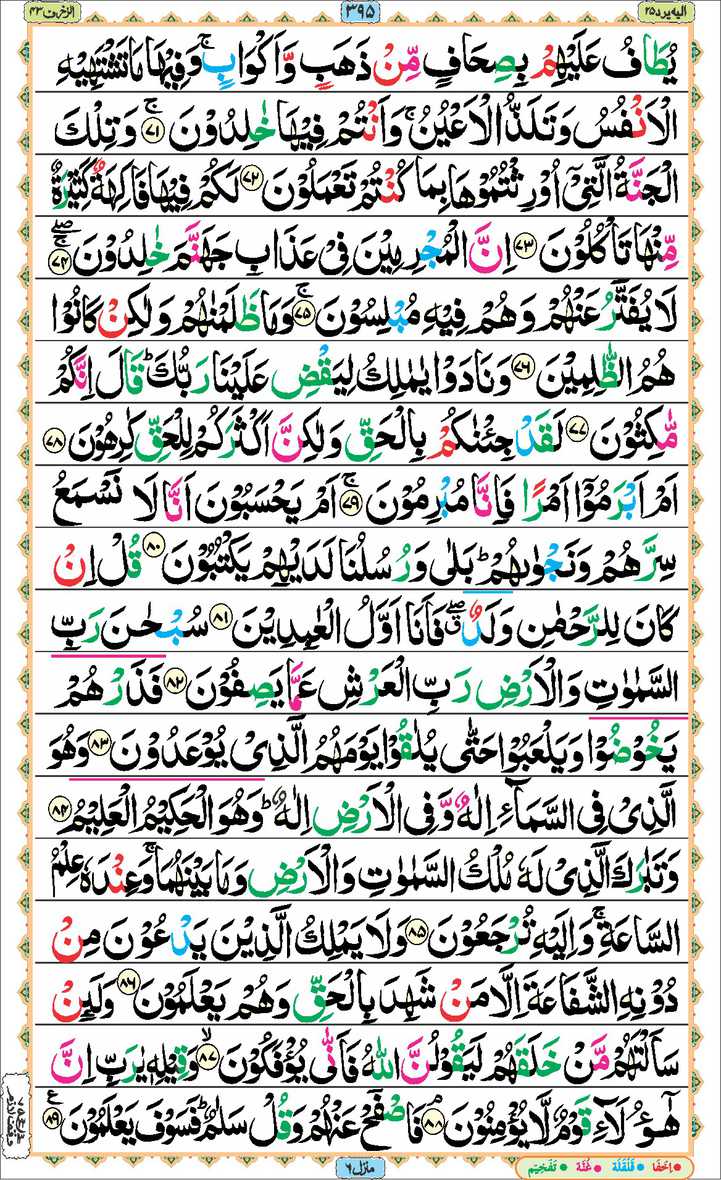 الیه یرد ۲۵ ۳۹۵ الزخرف ۴۳
یُطَافُ عَلَیْهِمْ بِصِحَافٍ مِّنْ ذَهَبٍ وَّاَكْوَابٍ ۚ وَفِیْهَا مَا تَشْتَهِیْهِ
الْاَنْفُسُ وَتَلَذُّ الْاَعْیُنُ ۚ وَاَنْتُمْ فِیْهَا خٰلِدُوْنَ ۚ ﴿۷۱﴾ وَتِلْكَ
الْجَنَّةُ الَّتِیْۤ اُوْرِثْتُمُوْهَا بِمَا كُنْتُمْ تَعْمَلُوْنَ ﴿۷۲﴾ لَكُمْ فِیْهَا فَاكِهَةٌ كَثِیْرَةٌ
مِّنْهَا تَاْكُلُوْنَ ﴿۷۳﴾ اِنَّ الْمُجْرِمِیْنَ فِیْ عَذَابِ جَهَنَّمَ خٰلِدُوْنَ ۚۖ ﴿۷۴﴾
لَا یُفَتَّرُ عَنْهُمْ وَهُمْ فِیْهِ مُبْلِسُوْنَ ۚ ﴿۷۵﴾ وَمَا ظَلَمْنٰهُمْ وَلٰكِنْ كَانُوْا
هُمُ الظّٰلِمِیْنَ ﴿۷۶﴾ وَنَادَوْا یٰمٰلِكُ لِیَقْضِ عَلَیْنَا رَبُّكَ ؕ قَالَ اِنَّكُمْ
مّٰكِثُوْنَ ﴿۷۷﴾ لَقَدْ جِئْنٰكُمْ بِالْحَقِّ وَلٰكِنَّ اَكْثَرَكُمْ لِلْحَقِّ كٰرِهُوْنَ ﴿۷۸﴾
اَمْ اَبْرَمُوْۤا اَمْرًا فَاِنَّا مُبْرِمُوْنَ ۚ ﴿۷۹﴾ اَمْ یَحْسَبُوْنَ اَنَّا لَا نَسْمَعُ
سِرَّهُمْ وَنَجْوٰىهُمْ ؕ بَلٰی وَرُسُلُنَا لَدَیْهِمْ یَكْتُبُوْنَ ﴿۸۰﴾ قُلْ اِنْ
كَانَ لِلرَّحْمٰنِ وَلَدٌ ۖۗ فَاَنَا اَوَّلُ الْعٰبِدِیْنَ ﴿۸۱﴾ سُبْحٰنَ رَبِّ
السَّمٰوٰتِ وَالْاَرْضِ رَبِّ الْعَرْشِ عَمَّا یَصِفُوْنَ ﴿۸۲﴾ فَذَرْهُمْ
یَخُوْضُوْا وَیَلْعَبُوْا حَتّٰی یُلٰقُوْا یَوْمَهُمُ الَّذِیْ یُوْعَدُوْنَ ﴿۸۳﴾ وَهُوَ
الَّذِیْ فِی السَّمَآءِ اِلٰهٌ وَّفِی الْاَرْضِ اِلٰهٌ ؕ وَهُوَ الْحَكِیْمُ الْعَلِیْمُ ﴿۸۴﴾
وَتَبٰرَكَ الَّذِیْ لَهٗ مُلْكُ السَّمٰوٰتِ وَالْاَرْضِ وَمَا بَیْنَهُمَا ۚ وَعِنْدَهٗ عِلْمُ
السَّاعَةِ ۚ وَاِلَیْهِ تُرْجَعُوْنَ ﴿۸۵﴾ وَلَا یَمْلِكُ الَّذِیْنَ یَدْعُوْنَ مِنْ
دُوْنِهِ الشَّفَاعَةَ اِلَّا مَنْ شَهِدَ بِالْحَقِّ وَهُمْ یَعْلَمُوْنَ ﴿۸۶﴾ وَلَىِٕنْ
سَاَلْتَهُمْ مَّنْ خَلَقَهُمْ لَیَقُوْلُنَّ اللّٰهُ فَاَنّٰی یُؤْفَكُوْنَ ۙ ﴿۸۷﴾ وَقِیْلِهٖ یٰرَبِّ اِنَّ
هٰۤؤُلَآءِ قَوْمٌ لَّا یُؤْمِنُوْنَ ۘ ﴿۸۸﴾ فَاصْفَحْ عَنْهُمْ وَقُلْ سَلٰمٌ ؕ فَسَوْفَ یَعْلَمُوْنَ ﴿۸۹﴾ ع
منزل ۶
اِخفَا قَلْقَلَة غُنَّة تَفْخِیْم